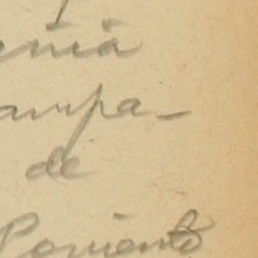 enia
ampa-
de
Poniente